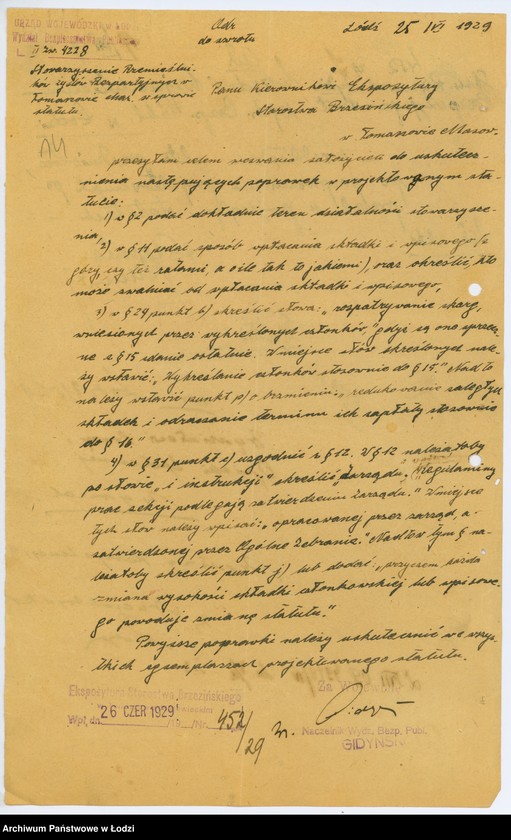 URZĄD WOJEWÓDZKI w ŁODZI
Wydział Bezpieczeństwa Publicznego
II Zw. 4228
Adr
do zwrotu
Łódź 25 VI 1929
Stowarzyszenie Rzemieślni-
ków żydów bezpartyjnych w
Tomaszowie Maz. w sprawie
statutu.
Panu Kierownikowi Ekspozytury
Starostwa Brzezińskiego
w Tomaszowie Mazow.
przesyłam celem wezwania założycieli do uskutecz-
nienia następujących poprawek w projektowanym sta-
tucie:
1) w § 2 podać dokładnie teren działalności stowarzysze-
nia,
2) w § 11 podać sposób wpłacania składki i wpisowego (z
góry, czy też ratami, a o ile tak to jakiemi) oraz określić, kto
może zwalniać od wpłacania składki i wpisowego,
3) w § 29 punkt b) skreślić słowa: „rozpatrywanie skarg,
wniesionych przez wykreślonych członków," gdyż są one sprzecz-
ne z § 15 zdanie ostatnie. W miejsce słów skreślonych nale-
ży wstawić: „Wykreślanie członków stosownie do § 15." Nadto
należy wstawić punkt p) o brzmieniu: „redukowanie zaległych
składek i odraczanie terminu ich zapłaty stosownie
do § 16."
4) w § 31 punkt e) uzgodnić z § 12. W § 12 należałoby
po słowie „i instrukcji" skreślić Zarządu, „Regulaminy
prac sekcji podlegają zatwierdzeniu Zarządu." W miejsce
tych słów należy wpisać: „opracowanej przez zarząd, a
zatwierdzonej przez Ogólne Zebranie." Nadto w tym § na-
leżałoby skreślić punkt j) lub dodać: „przyczem każda
zmiana wysokości składki członkowskiej lub wpisowe-
go powoduje zmianę statutu."
Powyższe poprawki należy uskutecznić we wszy-
stkich egzemplarzach projektowanego statutu.
Za Wojewodę
Naczelnik Wydz. Bezp. Publ.
GIDYŃSKI
Ekspozytura Starostwa Brzezińskiego
Wpł. dn. 26 CZER 1929 Nr. 452/29
Archiwum Państwowe w Łodzi